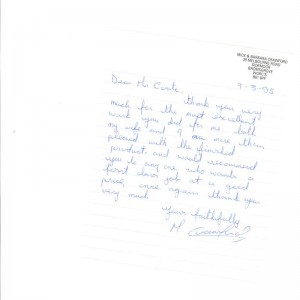 MICK & BARBARA CRAWFORD
20 MELBOURNE ROAD
BROMSGROVE
WORCS
9-3-98
Dear Mr Cook,
Thank you very
much for the most excellent
work you did for me both
my wife and I are more than
pleased with the finished
product and would recommend
you to any one who wants a
first class job at a good
price, once again thank you
very much
Yours faithfully
M